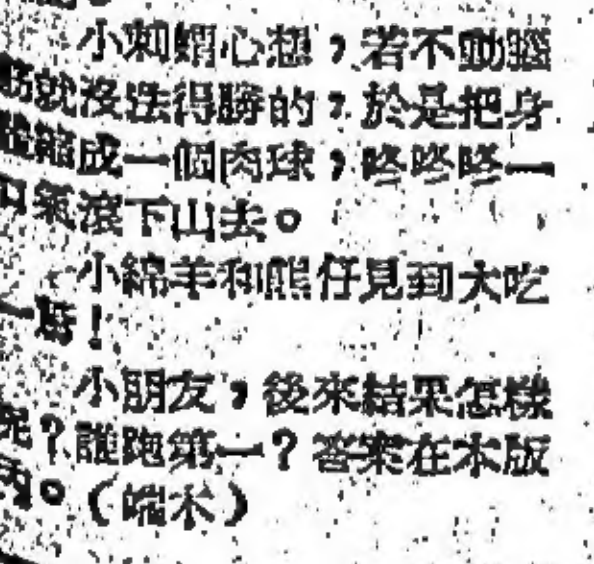 小刺蝟心想，若不動腦
筋就沒法得勝的，於是把身
體縮成一個肉球，咚咚咚一
口氣滾下山去。
小綿羊和熊仔見到大吃
一驚！
小朋友，後來結果怎樣
呢？誰跑第一？答案在本版
內。（端木）